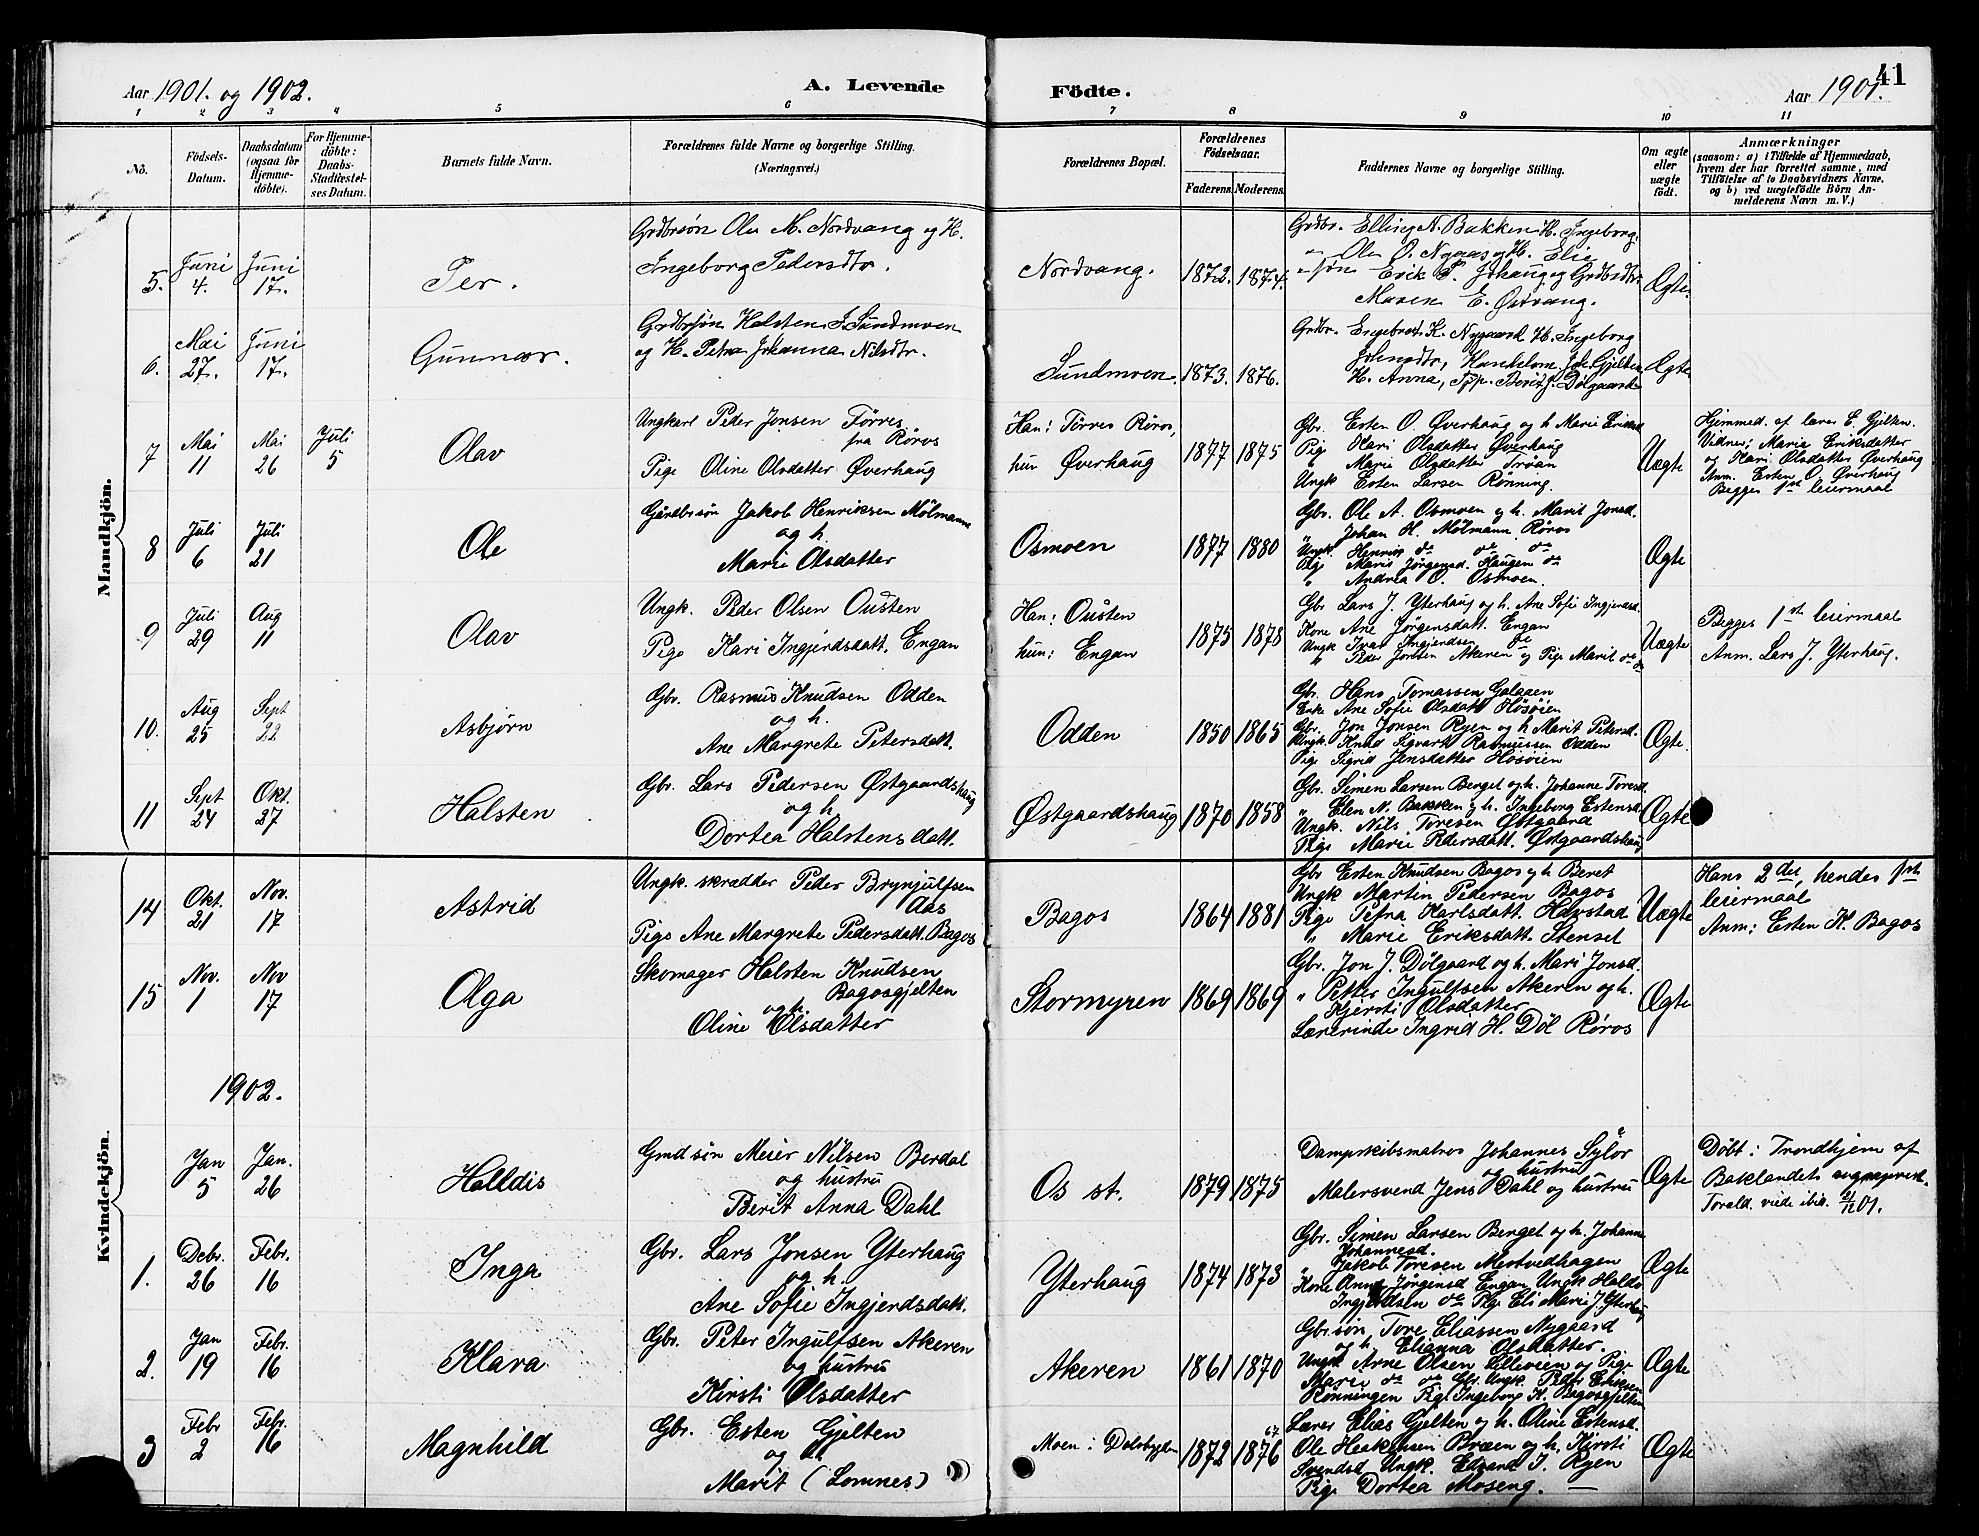 Aar 1901. og 1902.
A. Levende
Födte.
Aar 1901.
41
1 2 3 4 5 6 7 8 9 10 11
No.
Födsels-Datum.
Daabsdatum (ogsaa for Hjemme-döbte).
For Hjemme-döbte: Daabs-Stadfæstel-ses Datum.
Barnets fulde Navn.
Forældrenes fulde Navne og borgerlige Stilling.
(Næringsvei.)
Forældrenes Bopæl.
Forældrenes Födselsaar.
Faderens. Moderens.
Faddernes Navne og borgerlige Stilling.
Om ægte eller uægte født.
Anmærkninger
(saasom: a) i Tilfælde af Hjemmedaab, hvem der har forrettet samme, med Tilföielse af to Daabsvidners Navne, og b) ved uægtefödte Börn An-melderens Navn m. V.)
Mandkjön.
5. Juni 4. Juni 17.
Per.
Grdbrsøn Ole M. Nordvang og H.
Ingeborg Pedersdtr.
Nordvang. 1872. 1874.
Grdbr. Elling N. Bakken H. Ingeborg.
" Ole O. Nygaas og H. Elie
" søn Erik P. Johaug og Grdbsdtr.
Maren E. Østvang.
Ægte.
6. Mai 27. Juni 17.
Gunnar.
Grdbrsøn Halsten J. Sundmoen
og H. Petra Johanna Nilsdtr.
Sundmoen. 1873. 1876.
Grdbr. Engebret K. Nygaard H. Ingeborg
Johnsdtr, Handelsm. Joh. Gjelten
H. Anna, Berit J. Dølgaard
Ægte
7 Mai 11 Mai 26 Juli 5
Olav
Ungkarl Peder Jonsen Tørres
fra Røros
Pige Oline Olsdatter Øverhaug
Han: Tørres Røros,
hun Øverhaug
1877 1875
Gbr. Esten O. Øverhaug og h Marie Eriksd
Pige Kari Olsdatter Øverhaug
" Marie Olsdatter Trøan
Ungk Esten Larsen Rønning.
Uægte
Hjemmed. af lærer E. Gjelten.
Vidner; Marie Eriksdatter
og Kari Olsdatter Øverhaug
Anm. Esten O. Øverhaug
Begges 1ste leiermaal
8 Juli 6 Juli 21
Ole
Gårdbrsøn Jakob Henriksen Mølmann
og h.
Marie Olsdatter
Osmoen 1877 1880
Gbr. Ole A. Osmoen og h. Marit Jonsd.
" Johan H. Mølmann, Røros
Ungk. Henrik do do do
Pige Maris Jørgensd. Haugen do
" Andrea O. Osmoen.
Ægte
9 Juli 29 Aug 11
Olav
Ungk. Peder Olsen Ousten
Pige Kari Ingjerdsdatt. Engan
Han: Ousten
hun: Engan
1875 1878
Gbr Lars J. Yterhaug og h. Ane Sofie Ingjerdsd.
Kone Ane Jørgensdatt. Engan
Ungk Ivar Ingjerdsen do
" Peder Jonsen Akeren og Pige Marit do do
Uægte
Begges 1st leiermaal
Anm. Lars J. Yterhaug.
10. Aug 25 Sept 22
Asbjørn
Gbr. Rasmus Knudsen Odden
og h.
Ane Margrete Petersdatt.
Odden 1850 1865
Gbr. Hans Tomassen Galaaen
Enke Ane Sofie Olsdatt Høsøien
Gbr. Jon Jonsen Ryen og h Marit Petersd.
Ungk. Knud Sigvart Rasmussen Odden
Pige Sigrid Jensdatter Høsøien
Ægte
11 Sept 24 Okt. 27
Halsten
Gbr. Lars Pedersen Østgaardshaug
og h.
Dortea Halstensdatt.
Østgaardshaug 1870 1858
Gbr. Simen Larsen Berget og h. Johanne Toresd.
" Elen N. Bakken og h. Ingeborg Estensd.
Ungk. Nils Toresen Østgaard
Pige Marie Pedersdatt. Østgaardshaug
Ægte
Kvindekjön.
14 Okt. 21 Nov. 17
Astrid
Ungk. skrædder Peder Brynjulfsen
Aas
Pige Ane Margrete Pedersdatt. Bagos
Bagos 1864 1881
Gbr Esten Knudsen Bagos og h Beret
Ungk Martin Pedersen Bagos
Pige Petra Karlsdatt. Havstad
" Marie Eriksdatt. Stensel
Uægte
Hans 2det, hendes 1ste
leiermaal
Anm: Esten K. Bagos
15 Nov. 1 Nov 17
Olga
Skomager Halsten Knudsen
Bagosgjelten
og h.
Oline Olsdatter
Stormyren 1869 1869
Gbr. Jon J. Dølgaard og h. Mari Jonsd.
" Petter Ingulfsen Akeren og h.
Kjersti Olsdatter
Lærerinde Ingrid H. Døl Røros
Ægte
1902.
Jan 5 Jan. 26
Halldis
Gmdsøn Meier Nilsen Berdal
og hustru
Berit Anna Dahl
Os st. 1879 1875
Dampskibsmatros Johannes Sylor
og hustru
Malersvend Jens Dahl og hustru
Ægte
Døbt i Trondhjem af
Baklandets sogneprest.
Foræld. viede ibid. 01.
1. Debr. 26 Febr. 16
Inga
Gbr. Lars Jonsen Yterhaug
og h.
Ane Sofie Ingjerdsdatt.
Yterhaug 1874 1873
Gbr. Simen Larsen Berget og h. Johanne
Johannesd.
" Jakob Toresen Mestvedhagen
Kone Anne Jørgensd Engan Ungk Haldo
Ingjerdsen do Pige Eli Marie J. Yterhaug
Ægte
2. Jan 19 Febr. 16
Klara
Gbr. Peter Ingulfsen Akeren
og hustru
Kirsti Olsdatter
Akeren 1861 1870
Gbr.søn Tore Eliassen Nygaard
og h. Elianna Olsdatter.
Ungk Arne Olsen Lillevien og Pige
Marie do do Ungk. Peder Eriksen
Rønningen Pige Ingeborg K. Bagosgjelten
Ægte
3 Febr 2 Febr. 16
Magnhild
Gbr. Esten Gjelten
og h.
Marit (Lomnes)
Moen i Dalsbygden 1872 1876 67
Lærer Elias Gjelten og h. Oline Estensd.
Ole Heakonsen Bræen og h. Kirsti
Svendsd Ungk. Edvard I. Ryen
Pige Dortea Moseng. —
Ægte